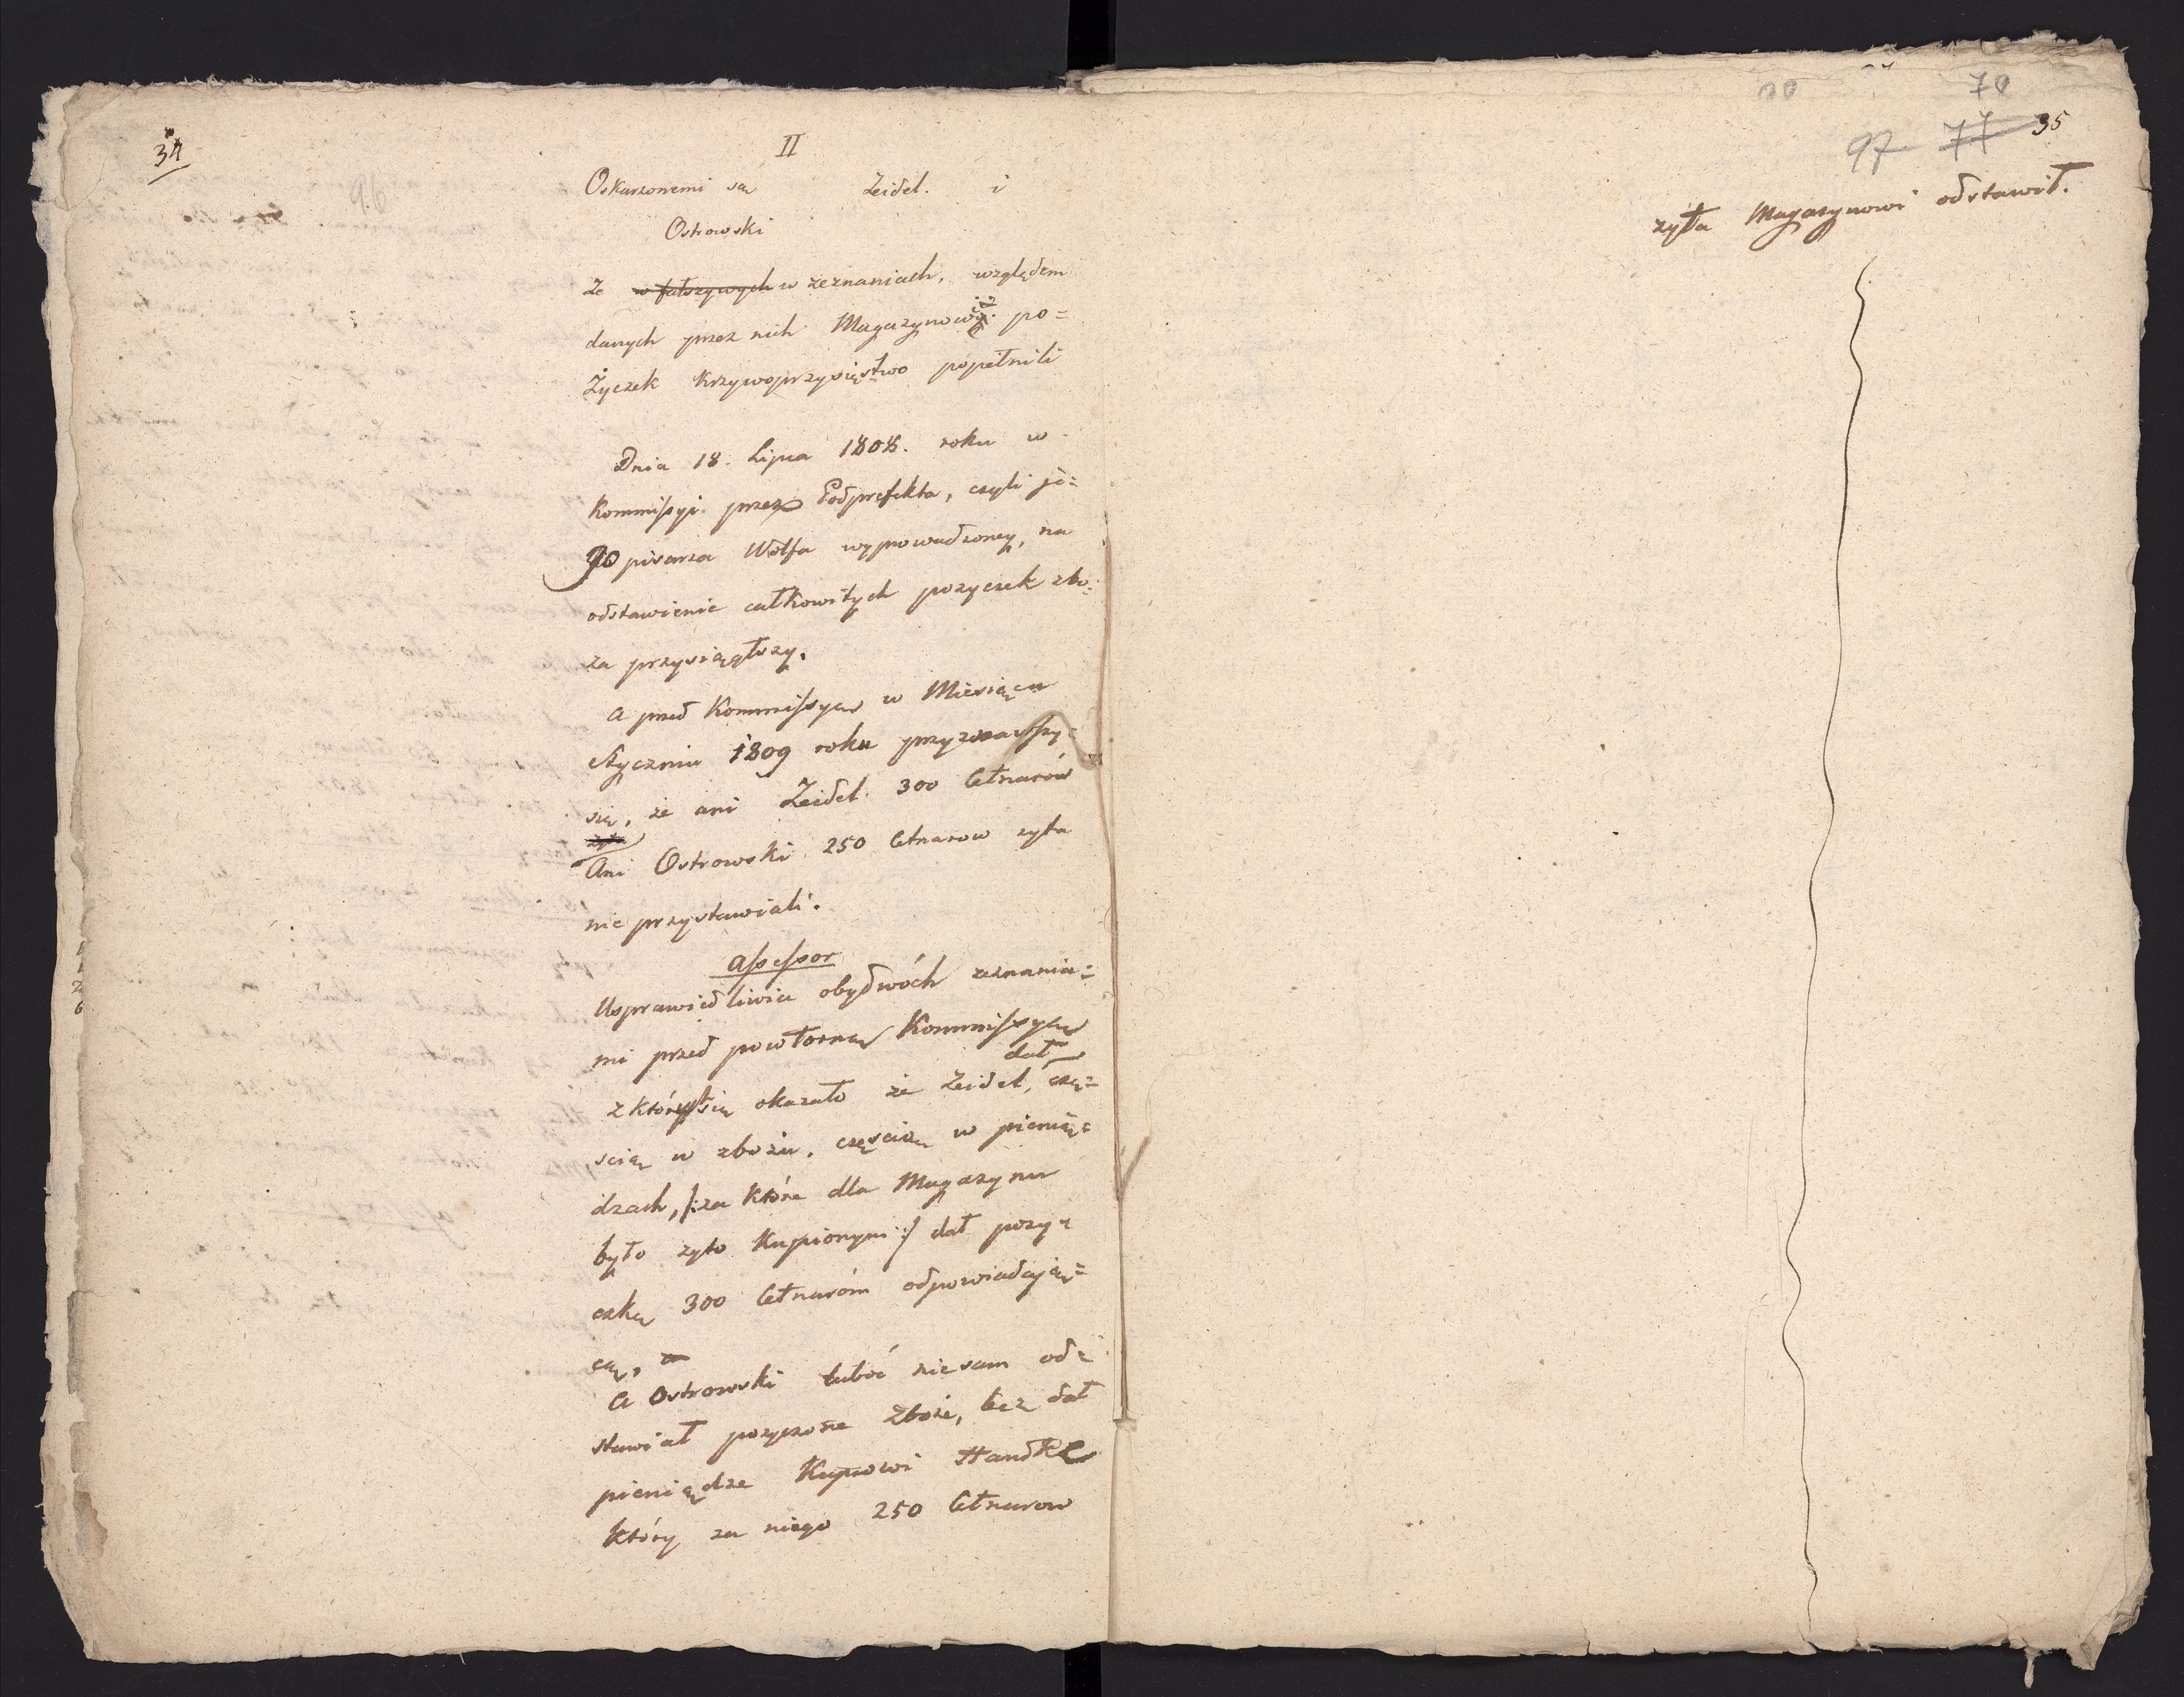 34
II
Oskarzonemi są Zeidel. i
Ostrowski
że w fałszywych w zeznaniach, względem
danych przez nich Magazynowi po=
Życzek Krzywoprzysięstwo popełnili
Dnia 18. Lipca 1808. roku w
Kommissyi przez Podprefekta, czyli je=
go pisarza Wolfa wyprowadzoney, na
odstawienie całkowitych pozyczek zbo=
za przysiągłszy.
A przed Kommissyą w Miesiącu
Styczniu 1809 roku przyznawszy=
się, że ani Zeidel 300 Cetnarów
żyta
Ani Ostrowski 250 Cetnarow zyta
nie przystawiali.
Assessor
Usprawiedliwia obydwóch zeznania=
mi przed powtorną Kommissyą
dał
z których się okazało że Zeidel, czę=
scią w zbożu, częscią w pienią=
dzach, /:za które dla Magazynu
było zyto Kupionym:/ dał pozy=
czkę 300 Cetnaróm odpowiadają=
cą, a
A Ostrowski lubo nie sam od=
stawiał pozyczone Zboże, lecz dał
pieniądze Kupcowi Handke
Który za niego 250 Cetnarow
70
97 77 35
zyta Magazynowi odstawił.